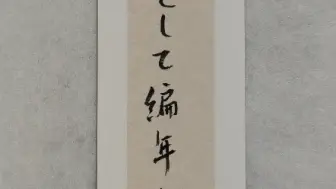 として編年